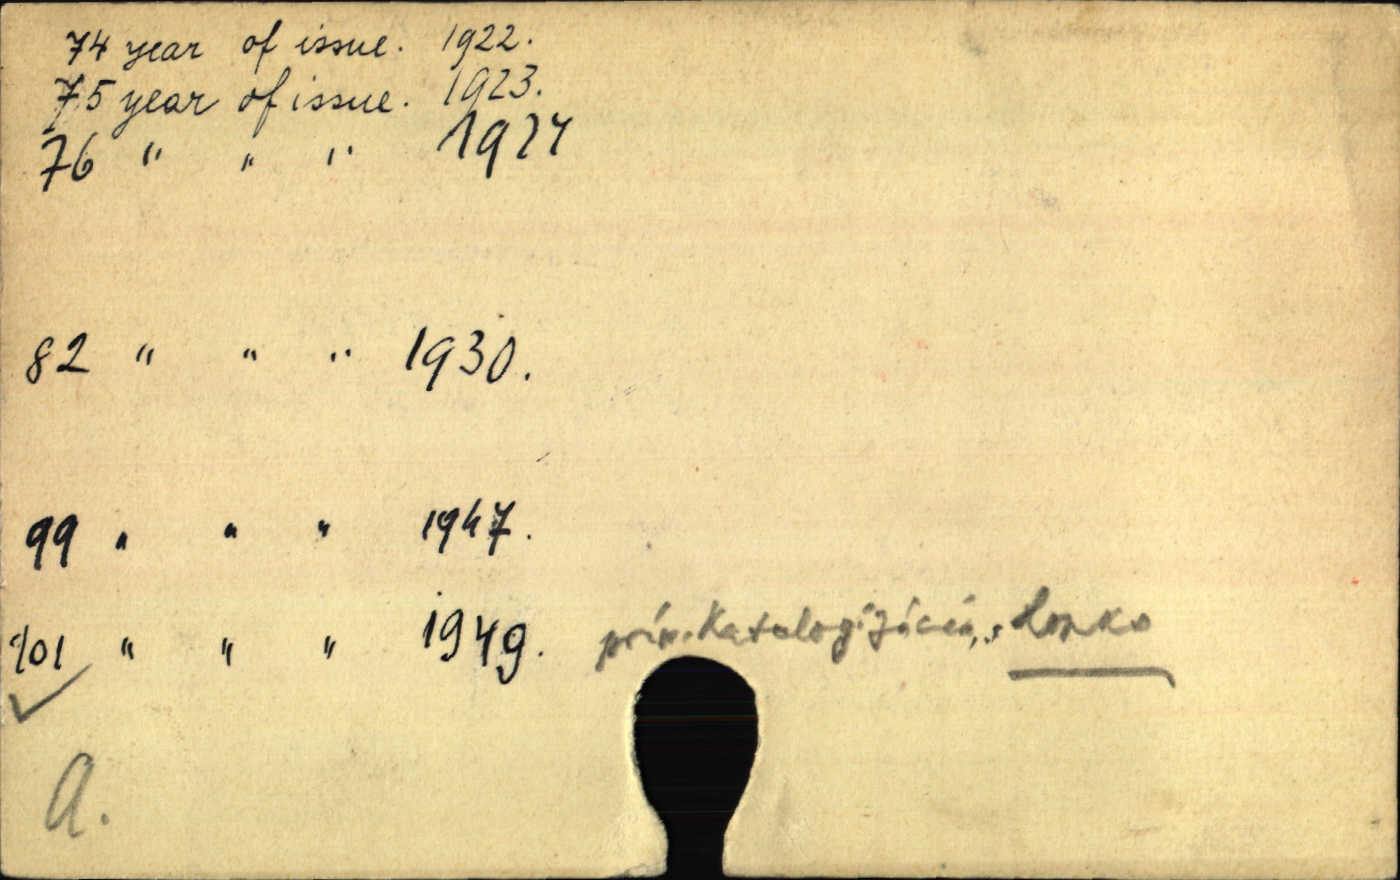 74 year of issue. 1922.
75 year of issue. 1923.
76 " " " 1924
82 " " " 1930.
99 " " " 1947.
101 " " " 1949. prív. Katalogizácii,
a.